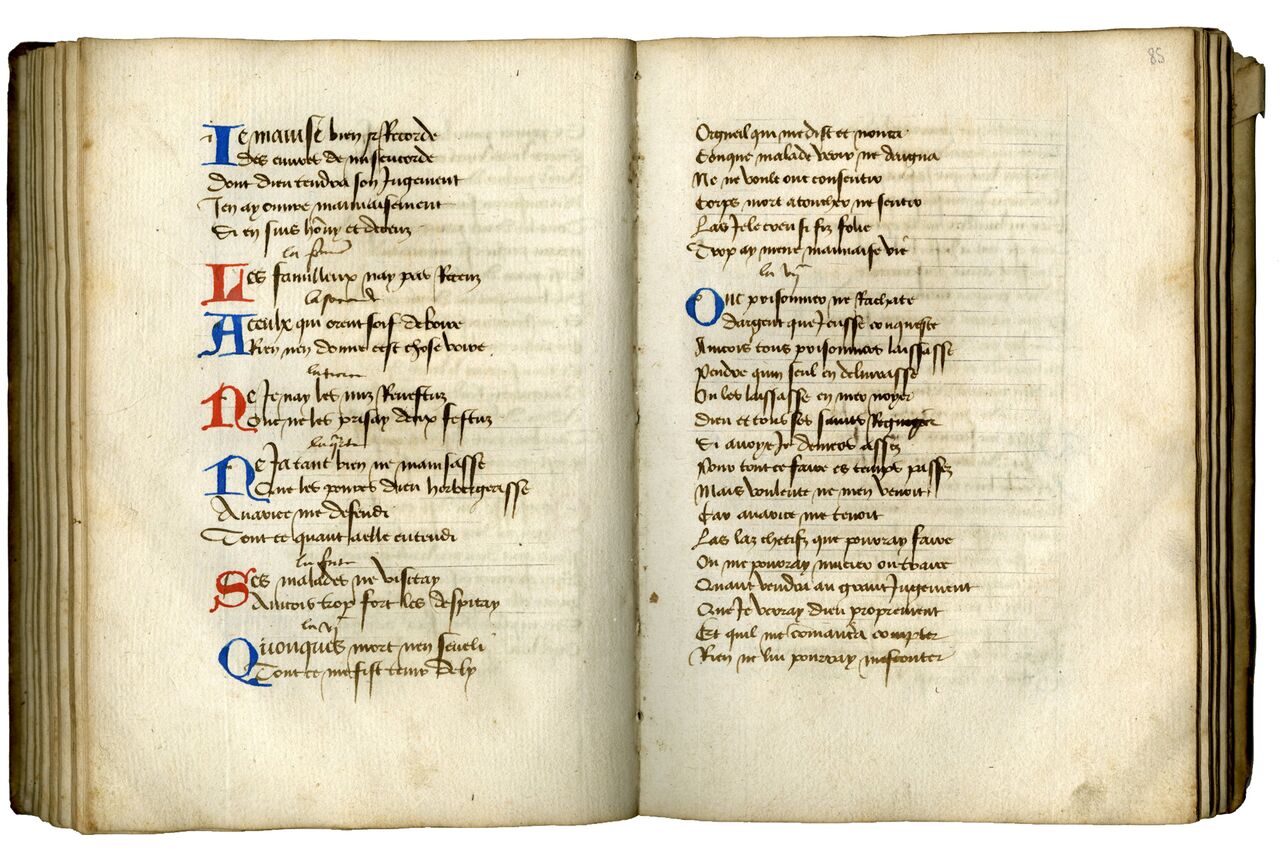 Ie mauise bien & Recorde
des euures de misericorde
dont dieu tendra son Jugement
Jen ay ouure mauuaisement
Si en suis honny et deceuz
la
Les familleux nay pas Receuz
la seconde
A ceulx qui orent soif de boire
Rien nen donne cest chose voire
la tierce
Ne Je nay les nuz Reuestuz
Que ne les prisay deux festuz
la qrte
Ne Ja tant bien ne mamsasse
Que les poures dieu herbergasse
Auarice me defendi
Tout ce quant a elle entendi
la
Les malades ne visitay
Aincois trop fort les despitay
la vj
Quonques mort nen seueli
Tout ce me fist
85
Orgueil qui me dist et nonca
Conque malade veoir ne daigna
Ne ne voult onc consentir
Corps mort atoucher ne sentir
Las Je le creu si fiz folie
Trop ay mene mauuaise vie
la vij
Onc prisonnier ne Rachate
dargent que Jeusse conqueste
Aincois tous prisonniers laissasse
Pendre quun seul en deliurasse
Ou les laissasse en mer noyer
dieu et tous ses saints
Si auoye Je deniers assez
Pour tout ce faire es temps passez
Mais voulente ne men venoit
Car auarice me tenoit
Las laz chetifz que pourray faire
Ou me pourray mucier ou traire
Quant vendra au grant Jugement
Que Je verray dieu proprement
Et quil me comandra compter
Rien ne lui pourray mesconter